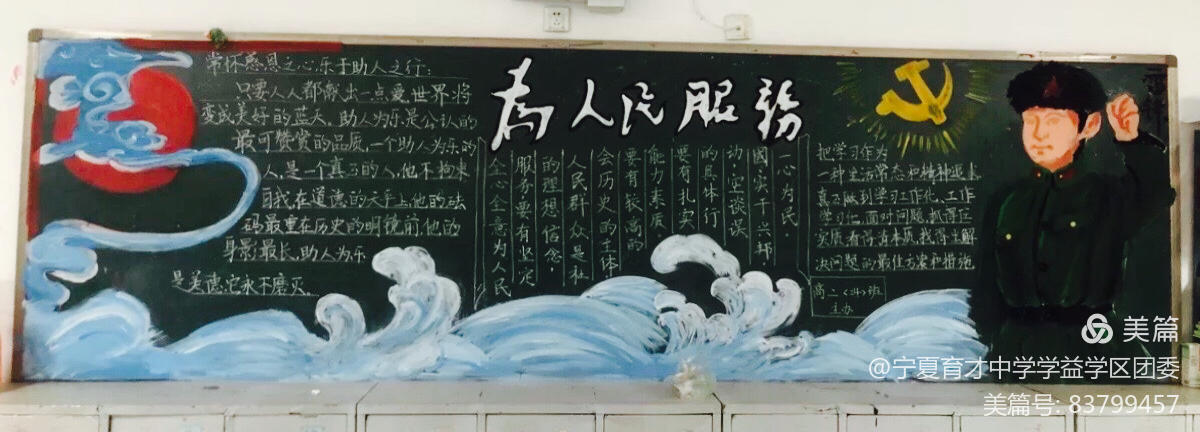 常怀感恩之心,乐于助人之行:
只要人人都献出一点爱,世界将
变成美好的蓝天。助人为乐是公认的
最可赞赏的品质,一个助人为乐的
人,是一个真正的人,他不拘束
自我,在道德的天平上他的砝
码最重,在历史的明镜前,他的
身影最长,助人为乐
是美德,它永不磨灭。
為人民服務
全心全意为人民
服务要有坚定
的理想信念,
人民群众是社
会历史的主体
要有较高的
能力素质
要有扎实
的具体行
动,空谈误
国,实干兴邦
一心为民,
把学习作为
一种生活常态和精神追求
真正做到学习工作化、工作
学习化,面对问题,抓得住
实质,看得清本质,找得出解
决问题的最佳方案和措施
高二 班
主办
美篇
@宁夏育才中学学益学区团委
美篇号: 83799457